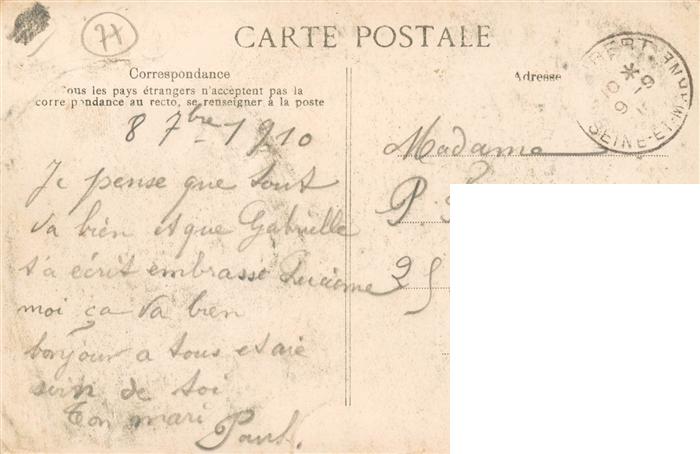 77
CARTE POSTALE
Correspondance
Tous les pays étrangers n'acceptent pas la
corre pondance au recto, se renseigner à la poste
8 7bre 1910
Je pense que tout
va bien et que Gabrielle
t'a écrit embrasse Lucienne
moi ça va bien
bonjour a tous et aie
soin de toi
Ton mari
Paul.
Adresse
Madame
P.
25
SEINE-ET-MARNE